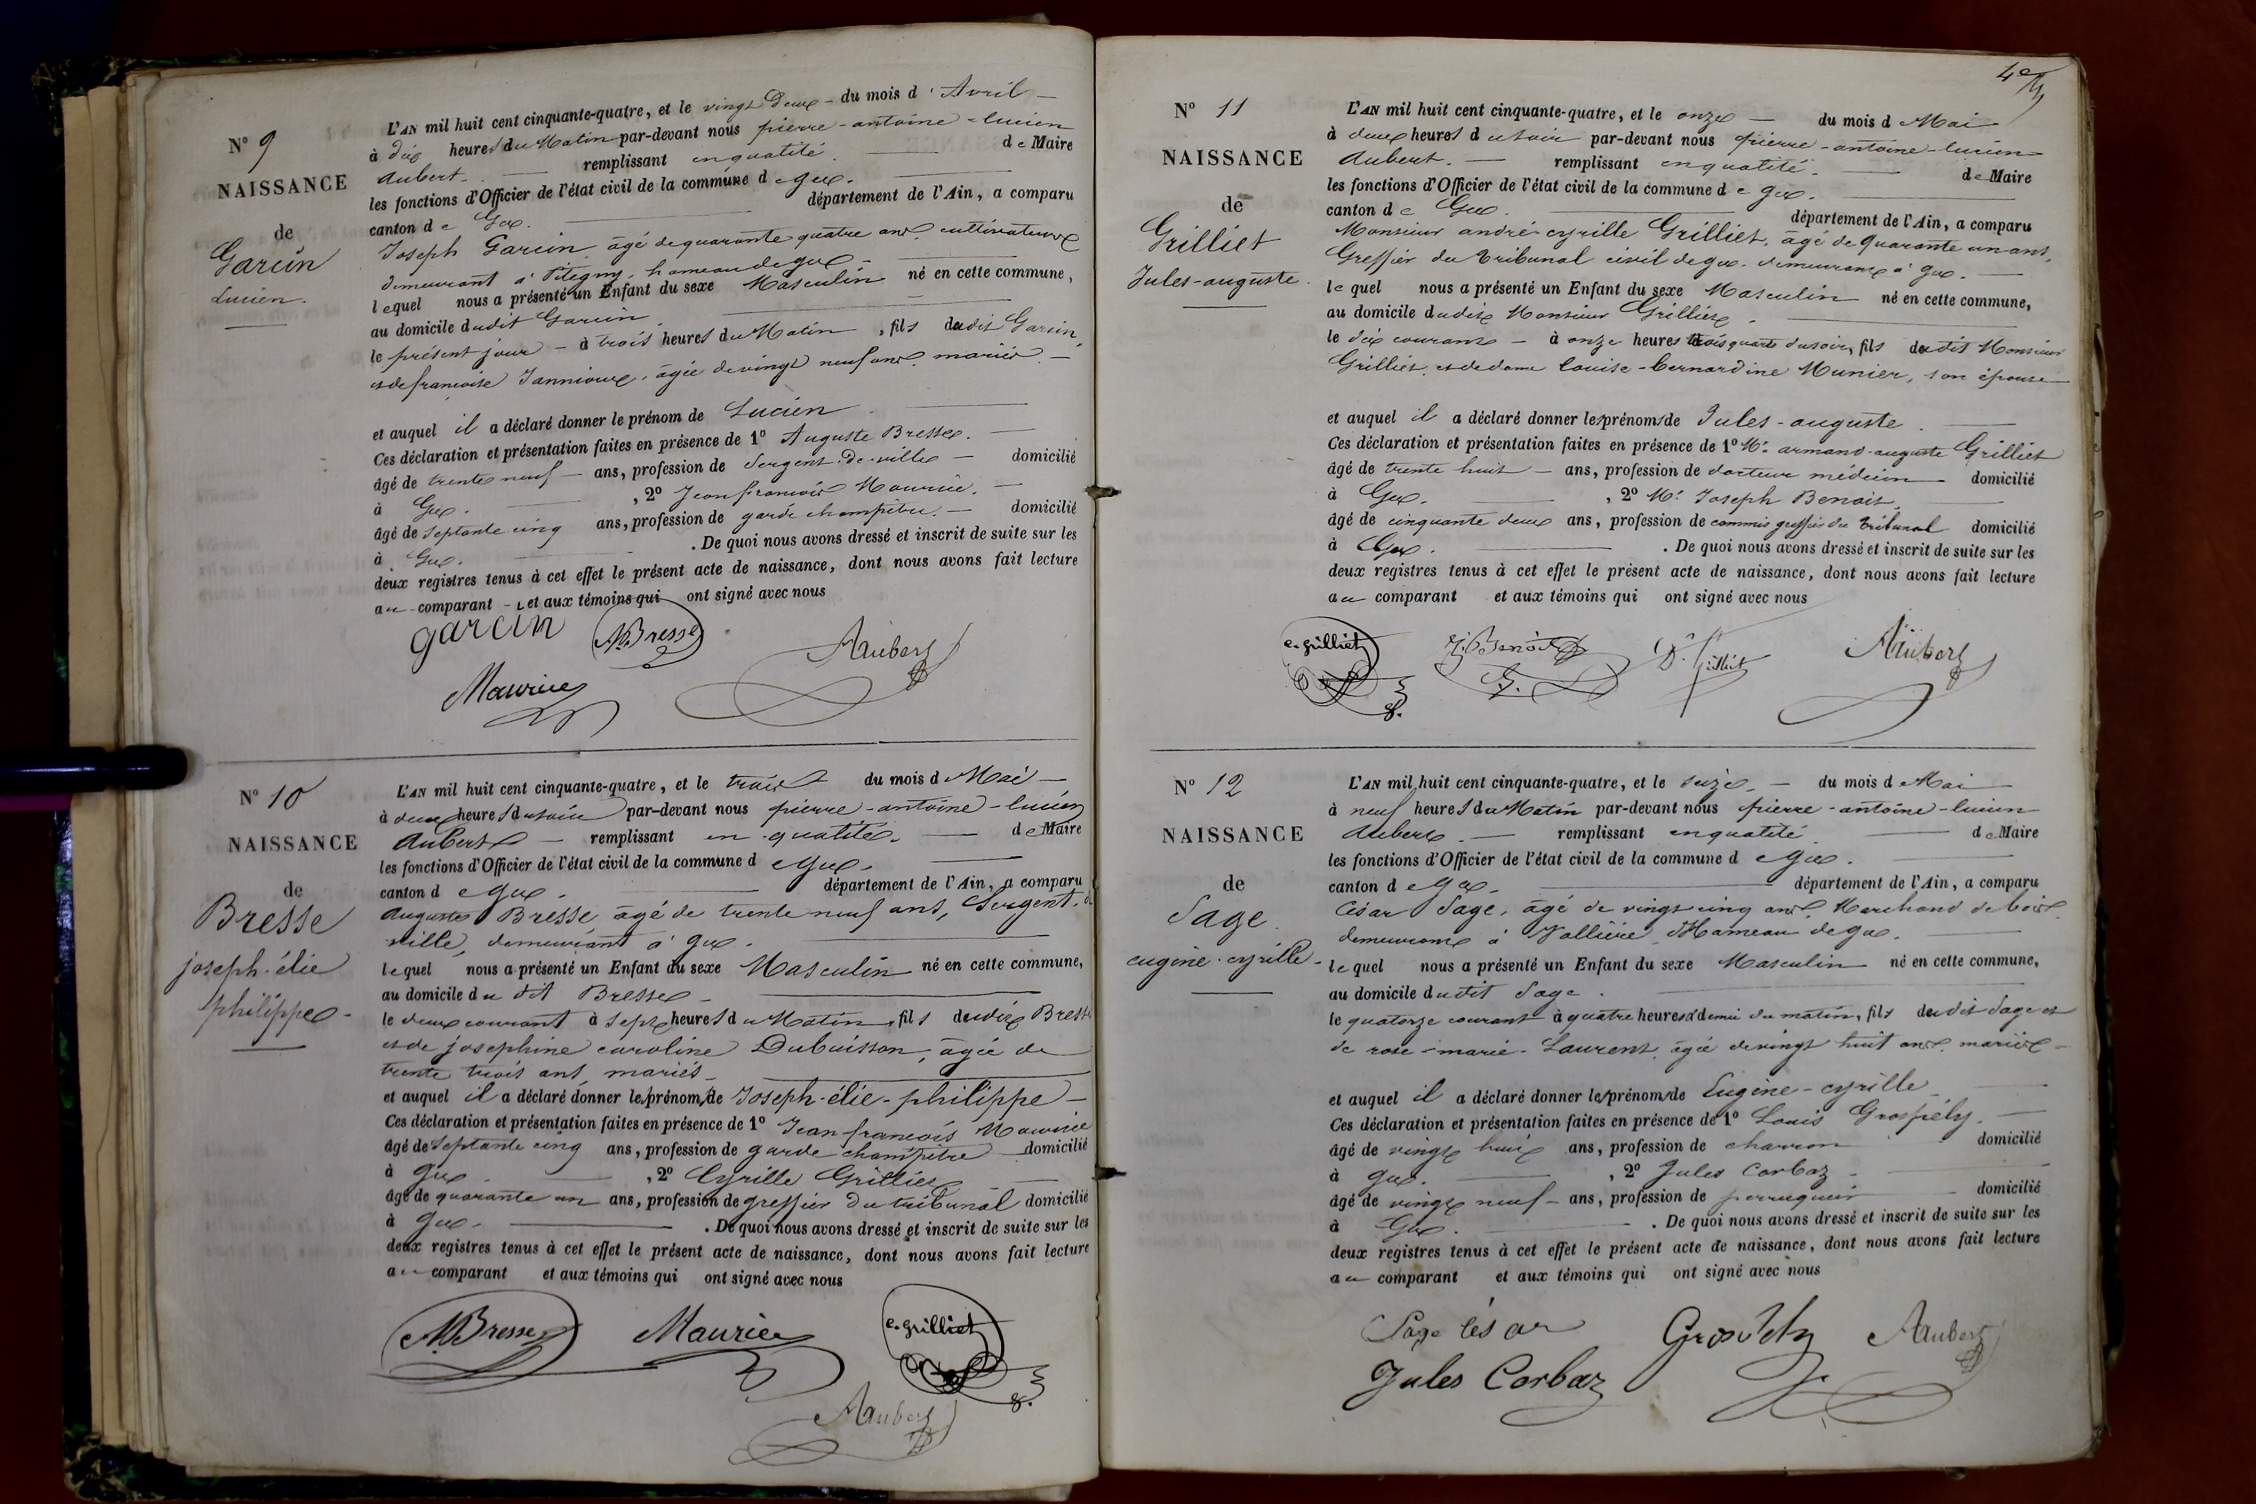 N° 9
NAISSANCE
de
Garcin
Lucien.
L'AN mil huit cent cinquante-quatre, et le vingt Deux - du mois d'Avril
à dix heures du Matin par-devant nous pierre-antoine-lucien
Aubert. remplissant en qualité de Maire
les fonctions d'Officier de l'état civil de la commune de gex.
canton de Gex. département de l'Ain, a comparu
Joseph Garcin âgé de quarante quatre ans, cultivateur
demeurant à Pitegny, hameau de gex -
lequel nous a présenté un Enfant du sexe Masculin né en cette commune,
au domicile dudit Garcin
le présent jour - à trois heures du Matin, fils dudit Garcin,
et de francoise Jannioux, âgée de vingt neuf ans mariés. -
et auquel il a déclaré donner le prénom de Lucien
Ces déclaration et présentation faites en présence de 1° Auguste Bresse.
âgé de trente neuf - ans, profession de Sergent-de-ville - domicilié
à Gex. , 2° Jean francois Maurice.
âgé de Septante cinq ans, profession de garde champêtre. - domicilié
à Gex. . De quoi nous avons dressé et inscrit de suite sur les
deux registres tenus à cet effet le présent acte de naissance, dont nous avons fait lecture
au comparant - et aux témoins qui ont signé avec nous
garcin ABresse Aubert
Maurice
N° 10
NAISSANCE
de
Bresse
joseph-élie
philippe -
L'AN mil huit cent cinquante-quatre, et le trois du mois de Mai -
à deux heures du soir par-devant nous pierre-antoine-lucien
Aubert - remplissant en qualité. de Maire
les fonctions d'Officier de l'état civil de la commune de gex.
canton de gex. département de l'Ain, a comparu
Auguste Bresse, âgé de trente neuf ans, Sergent-de
ville, demeurant à gex.
lequel nous a présenté un Enfant du sexe Masculin né en cette commune,
au domicile du dit Bresse -
le deux courant à sept heures du Matin, fils dudit Bresse
et de josephine caroline Dubuisson, âgée de
trente trois ans, mariés -
et auquel il a déclaré donner les prénoms de Joseph-élie-philippe -
Ces déclaration et présentation faites en présence de 1° Jean francois Maurice
âgé de Septante cinq ans, profession de garde champêtre domicilié
à gex , 2° Cyrille Grilliet
âgé de quarante un ans, profession de greffier du tribunal domicilié
à gex. . De quoi nous avons dressé et inscrit de suite sur les
deux registres tenus à cet effet le présent acte de naissance, dont nous avons fait lecture
au comparant et aux témoins qui ont signé avec nous
ABresse Maurice c. grilliet
Aubert
4e
N° 11
NAISSANCE
de
Grilliet
Jules-auguste.
L'AN mil huit cent cinquante-quatre, et le onze - du mois de Mai
à deux heures du soir par-devant nous pierre-antoine-lucien
Aubert. - remplissant en qualité. de Maire
les fonctions d'Officier de l'état civil de la commune de gex.
canton de Gex. département de l'Ain, a comparu
Monsieur andré-cyrille Grilliet, âgé de quarante un ans,
Greffier du tribunal civil de gex. demeurant à gex. -
lequel nous a présenté un Enfant du sexe Masculin né en cette commune,
au domicile dudit Monsieur Grilliet.
le dix courant - à onze heures trois quarts du soir, fils dudit Monsieur
Grilliet, et de dame louise-bernardine Munier, son épouse
et auquel il a déclaré donner les prénoms de Jules-auguste.
Ces déclaration et présentation faites en présence de 1° Mr. armand-auguste Grilliet
âgé de trente huit - ans, profession de docteur médecin domicilié
à Gex. , 2° Mr. Joseph Benoit,
âgé de cinquante deux ans, profession de commis greffier du tribunal domicilié
à Gex. . De quoi nous avons dressé et inscrit de suite sur les
deux registres tenus à cet effet le présent acte de naissance, dont nous avons fait lecture
au comparant et aux témoins qui ont signé avec nous
c. grilliet J. Benoit Dr. Grilliet Aubert
N° 12
NAISSANCE
de
Sage
eugène-cyrille -
L'AN mil huit cent cinquante-quatre, et le seize. - du mois de Mai
à neuf heures du Matin par-devant nous pierre-antoine-lucien
Aubert. - remplissant en qualité de Maire
les fonctions d'Officier de l'état civil de la commune de gex.
canton de gex. département de l'Ain, a comparu
César Sage, âgé de vingt cinq ans, Marchand de bois
demeurant à Vallière, Hameau de gex.
lequel nous a présenté un Enfant du sexe Masculin né en cette commune,
au domicile dudit Sage.
le quatorze courant à quatre heures & demie du matin, fils dudit Sage et
de rose-marie-Laurent, âgée de vingt huit ans mariés -
et auquel il a déclaré donner les prénoms de Eugène-cyrille
Ces déclaration et présentation faites en présence de 1° Louis Grospiély.
âgé de vingt huit ans, profession de charron domicilié
à gex. , 2° Jules Corbaz -
âgé de vingt neuf - ans, profession de perruquier domicilié
à Gex. . De quoi nous avons dressé et inscrit de suite sur les
deux registres tenus à cet effet le présent acte de naissance, dont nous avons fait lecture
au comparant et aux témoins qui ont signé avec nous
Sage César Aubert
Jules Corbaz